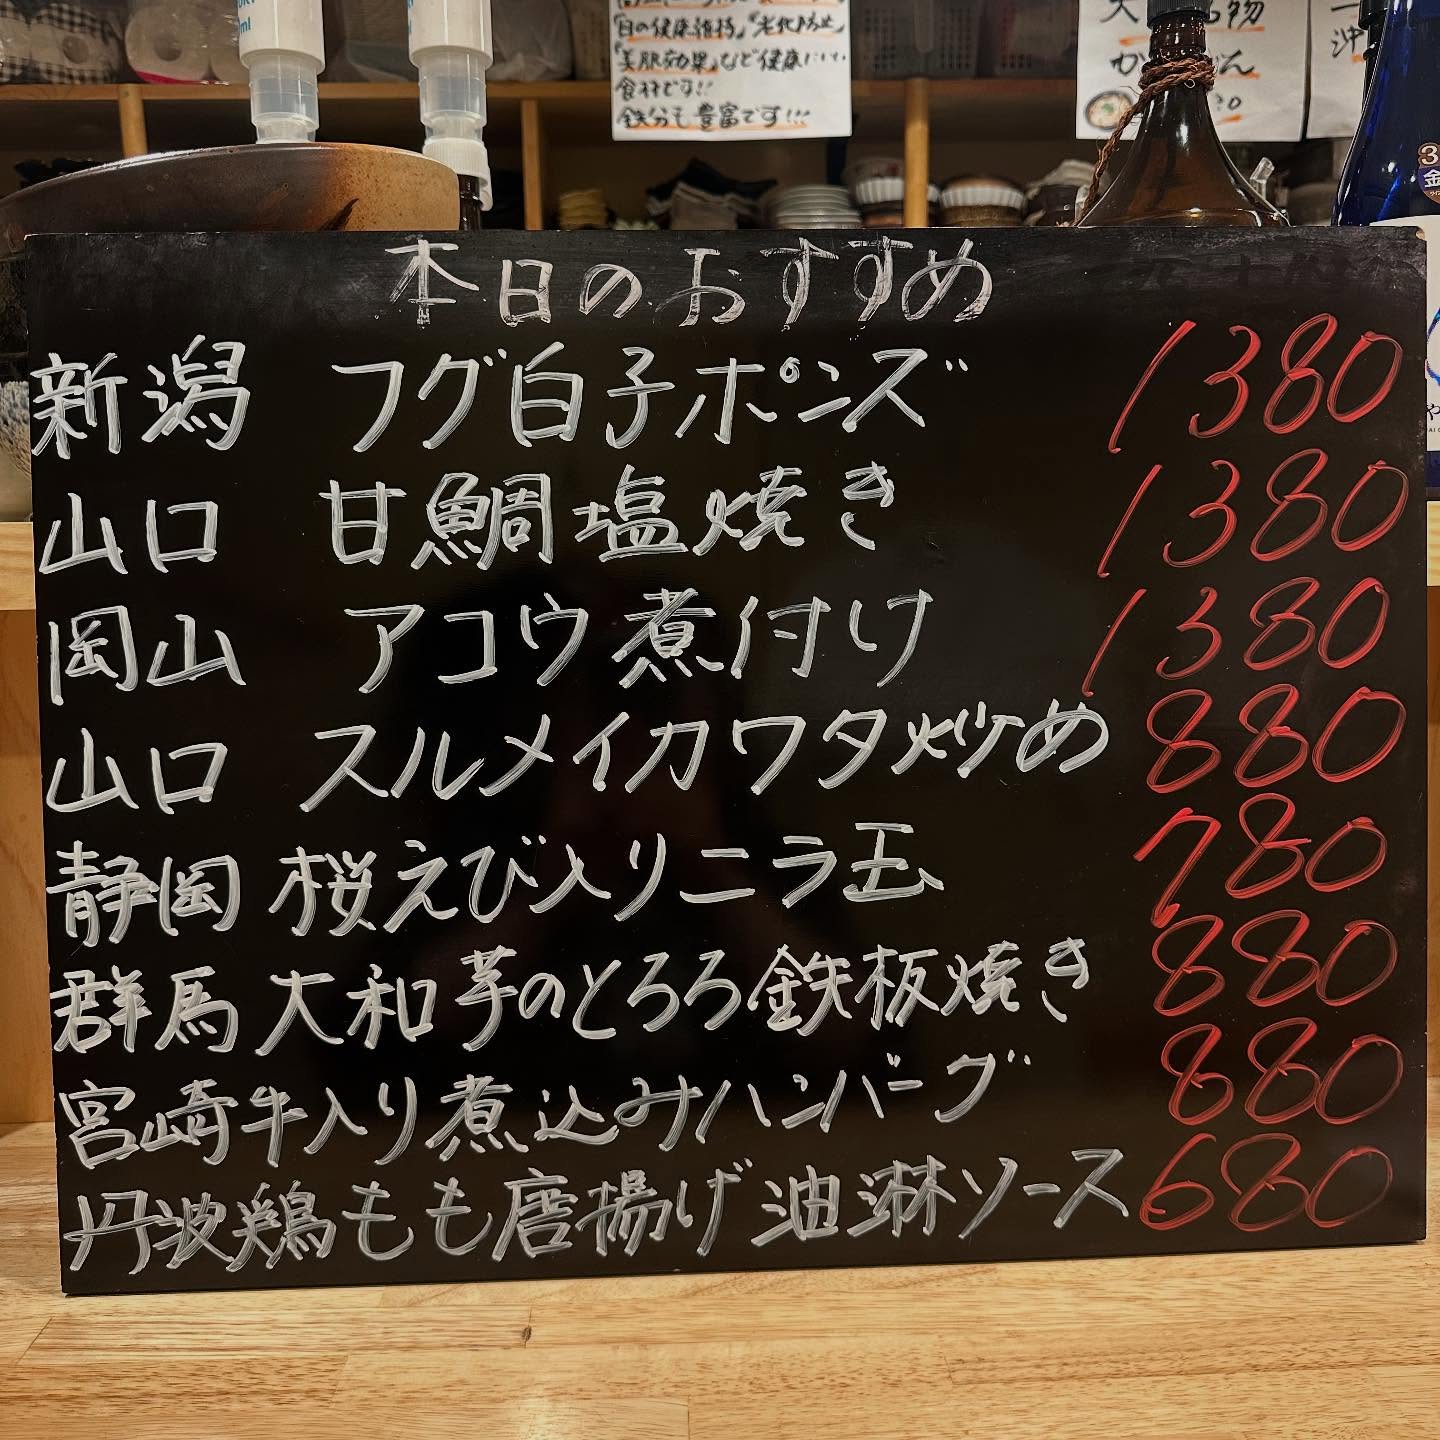 「目の健康維持」「老化防止」
「美肌効果」など健康にいい
食材です!!
鉄分も豊富です!!!
本日のおすすめ
新潟 フグ白子ポンズ 1380
山口 甘鯛塩焼き 1380
岡山 アコウ煮付け 1380
山口 スルメイカワタ炒め 880
静岡 桜えび入りニラ玉 780
群馬 大和芋のとろろ鉄板焼き 880
宮崎牛入り煮込みハンバーグ 880
丹波鶏もも唐揚げ 油淋ソース 680